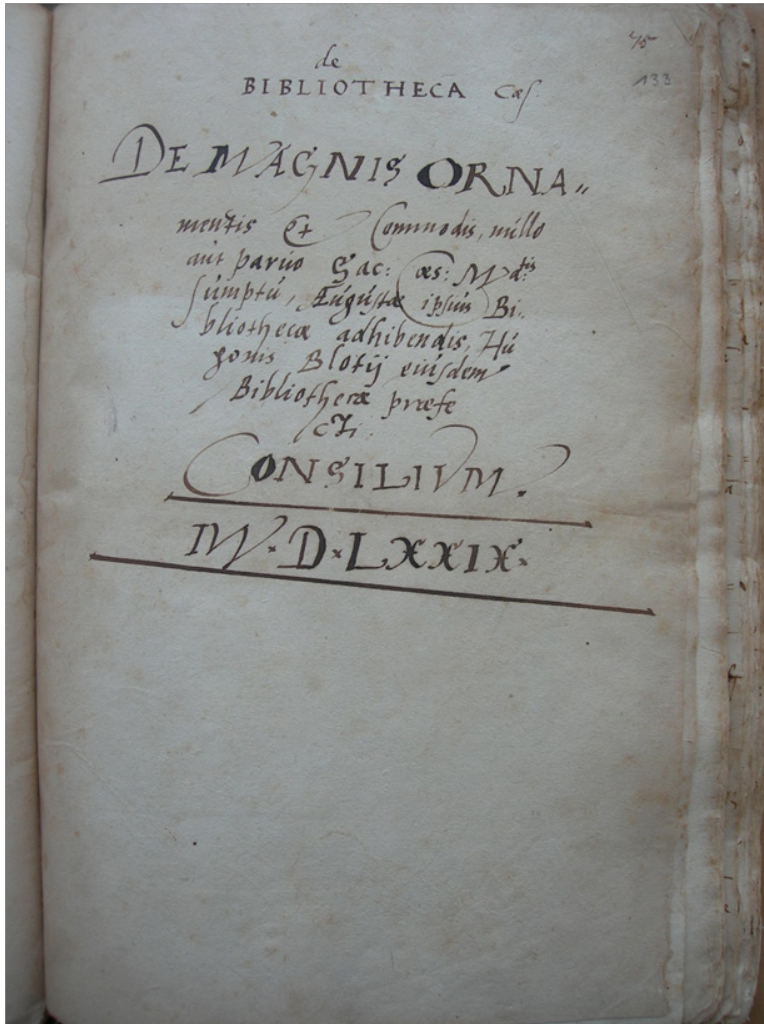 75
133
de
BIBLIOTHECA Cæs.
DE MAGNIS ORNA„
mentis et Commodis, nullo
aut paruo Sac: Cæs: M.dtis
sumptu, Augustæ ipsius Bi„
bliothecæ adhibendis, Hu
gonis Blotij eiusdem
Bibliothecæ præfe
cti.
CONSILIVM.
M·D·LXXIX·